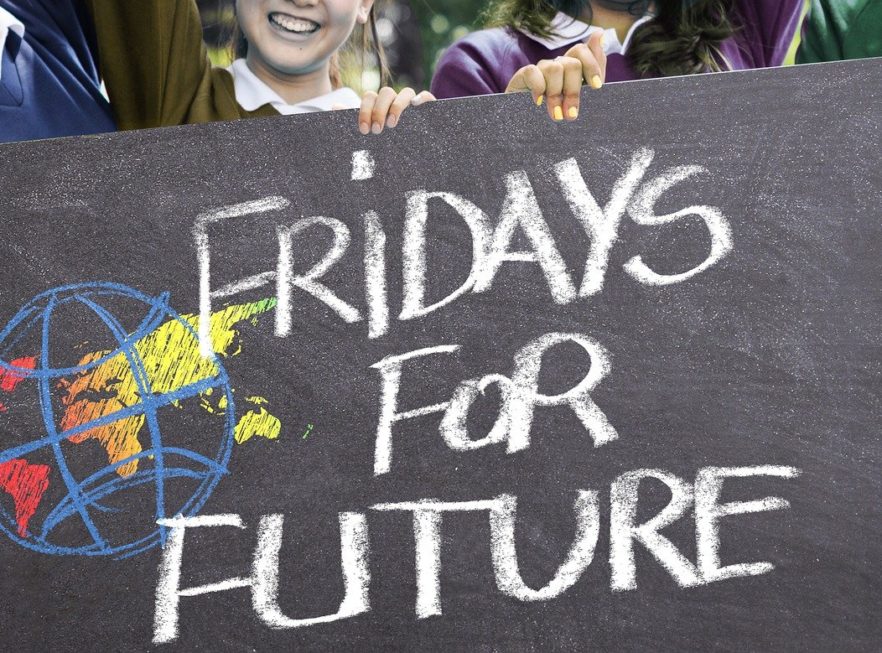 FRIDAYS
FOR
FUTURE